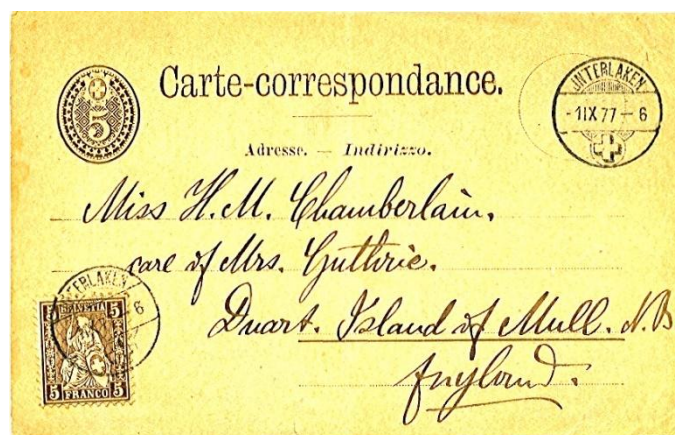 5
Carte-correspondance.
INTERLAKEN
- 1 IX 77 - 6
Adresse. — Indirizzo.
Miss H. M. Chamberlain,
care of Mrs. Guthrie.
Duart. Island of Mull. N.B
England.
TERLAKEN
6
5 HELVETIA 5
5 FRANCO 5